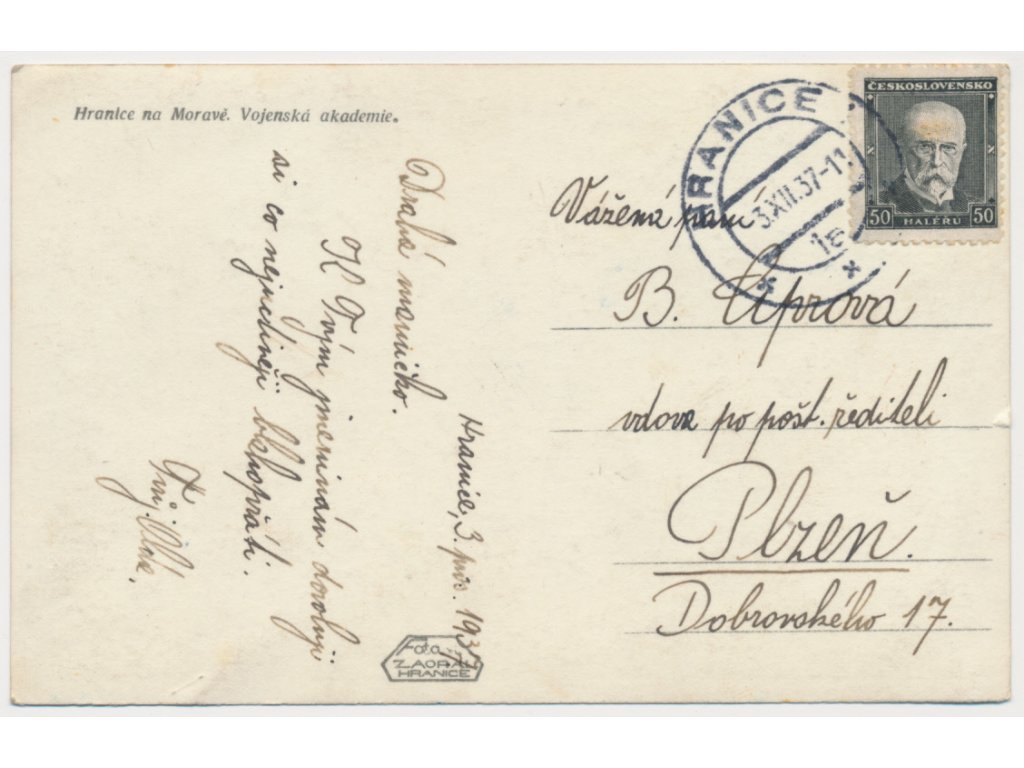 Hranice na Moravě. Vojenská akademie.
Hranice, 3. pros. 1937
Drahá maminko.
K Tvým jmeninám dovoluji
si co nejsrdečněji blahopřáti.
Tvůj
HRANICE
3.XII.37-11
ČESKOSLOVENSKO
50 HALÉŘŮ 50
Vážená paní
B. Úprová
vdova po pošt. řediteli
Plzeň.
Dobrovského 17.
Foto
ZAORAL
HRANICE